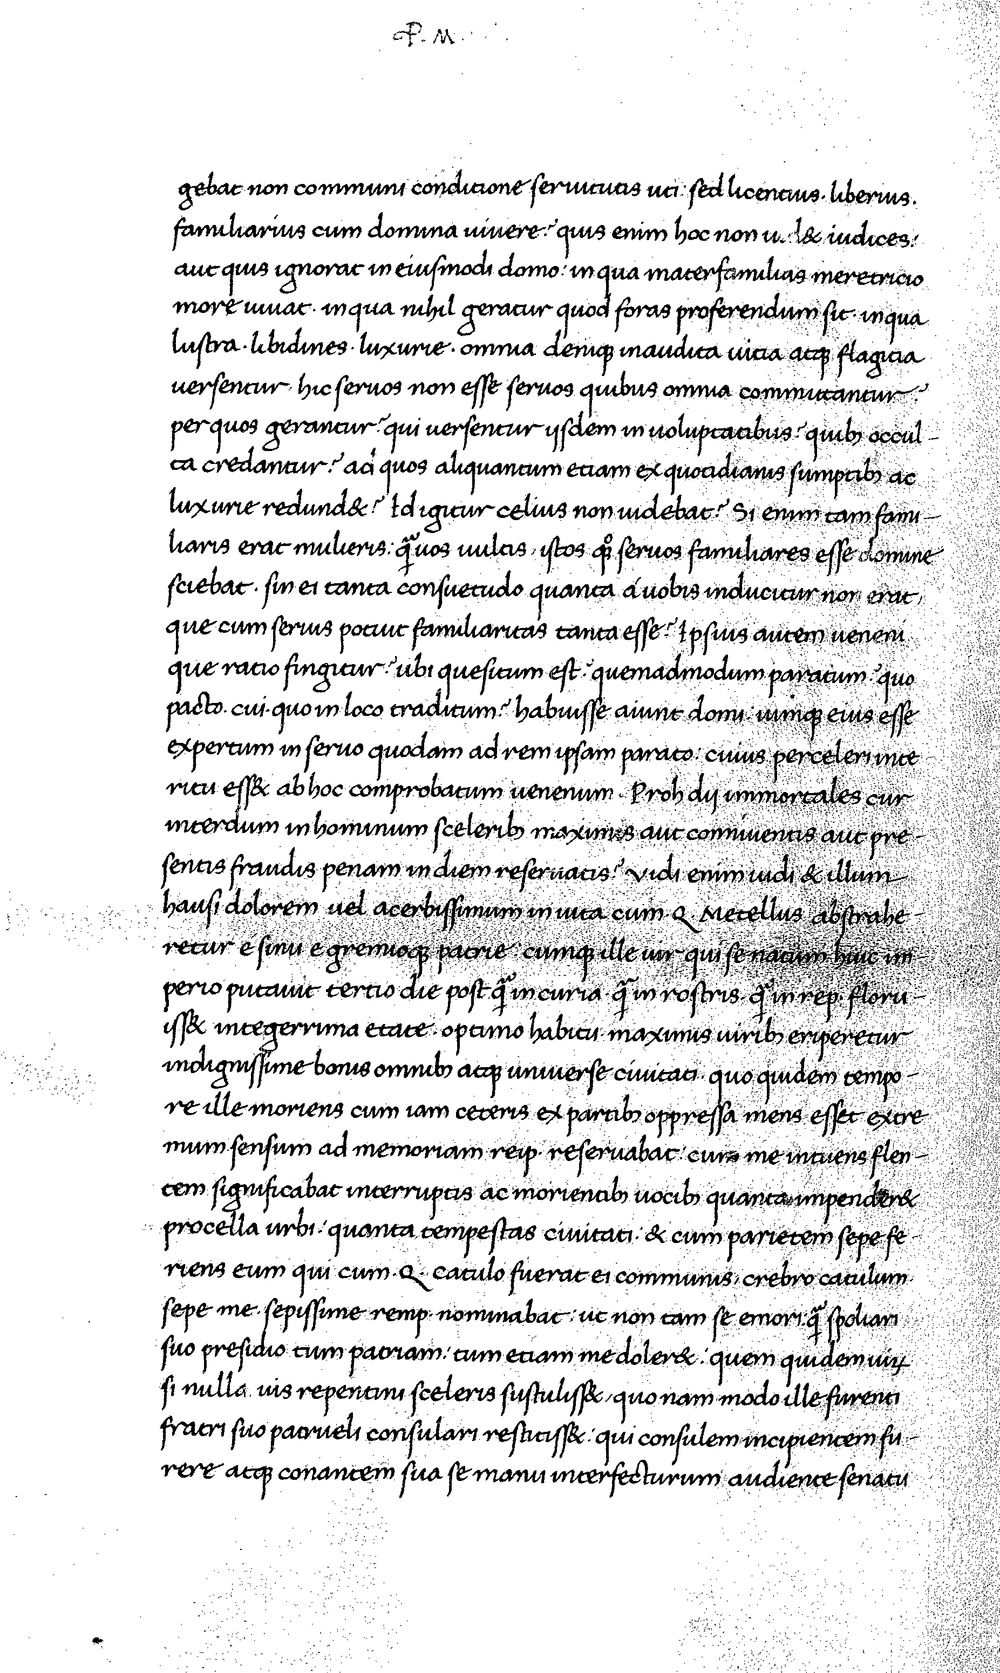 P. M.
gebat non communi conditione seruitutis uti: sed licentius. liberius.
familiarius cum domina uiuere? quis enim hoc non u. l& iudices?
aut quis ignorat in eiusmodi domo: in qua materfamilias meretricio
more uiuat. in qua nihil geratur quod foras proferendum sit. in qua
lustra. libidines. luxurie. omnia deniqꝫ inaudita uitia atqꝫ flagitia
uersentur. hic seruos non esse seruos quibus omnia commutantur?
per quos gerantur? qui uersentur iisdem in uoluptatibus? quibꝫ occul-
ta credantur? ad quos aliquantum etiam ex quotidianis sumptibꝫ ac
luxurie redund&? Id igitur celius non uidebat? Si enim tam fami-
liaris erat mulieris: q̃uos uultis, istos qͦꝫ seruos familiares esse domine
sciebat. sin ei tanta consuetudo quanta a uobis inducitur non erat,
que cum seruis potuit familiaritas tanta esse? Ipsius autem ueneni
que ratio fingitur? ubi quesitum est? quemadmodum paratum? quo
pacto. cui. quo in loco traditum? habuisse aiunt domi. uimqꝫ eius esse
expertum in seruo quodam ad rem ipsam parato. cuius perceleri inte
ritu ess& ab hoc comprobatum uenenum. Proh dij immortales cur
interdum in hominum sceleribꝫ maximis aut conniuentis aut pre-
sentis fraudis penam in diem reseruatis? Vidi enim uidi & illum
hausi dolorem uel acerbissimum in uita cum Q. Metellus abstrahe-
retur e sinu e gremioqꝫ patrie. cumqꝫ ille uir qui se natum huic im
perio putauit tertio die post q̃ in curia. q̃ in rostris. q̃ in rep. floru-
iss& integerrima etate. optimo habitu maximis uiribꝫ eriperetur
indignissime bonis omnibꝫ atqꝫ uniuerse ciuitati. quo quidem tempo-
re ille moriens cum iam ceteris ex partibꝫ oppressa mens esset extre
mum sensum ad memoriam reip. reseruabat: cum me intuens flen-
tem significabat interruptis ac morientibꝫ uocibꝫ quanta impender&
procella urbi: quanta tempestas ciuitati. & cum parietem sepe fe-
riens eum qui cum. Q. catulo fuerat ei communis, crebro catulum.
sepe me. sepissime remp. nominabat: ut non tam se emori q̃ spoliari
suo presidio tum patriam: tum etiam me doler&: quem quidem uiꝝ
si nulla uis repentini sceleris sustuliss&, quo nam modo ille furenti
fratri suo patrueli consulari restitiss&: qui consulem incipientem fu-
rere atqꝫ conantem sua se manu interfecturum audiente senatu